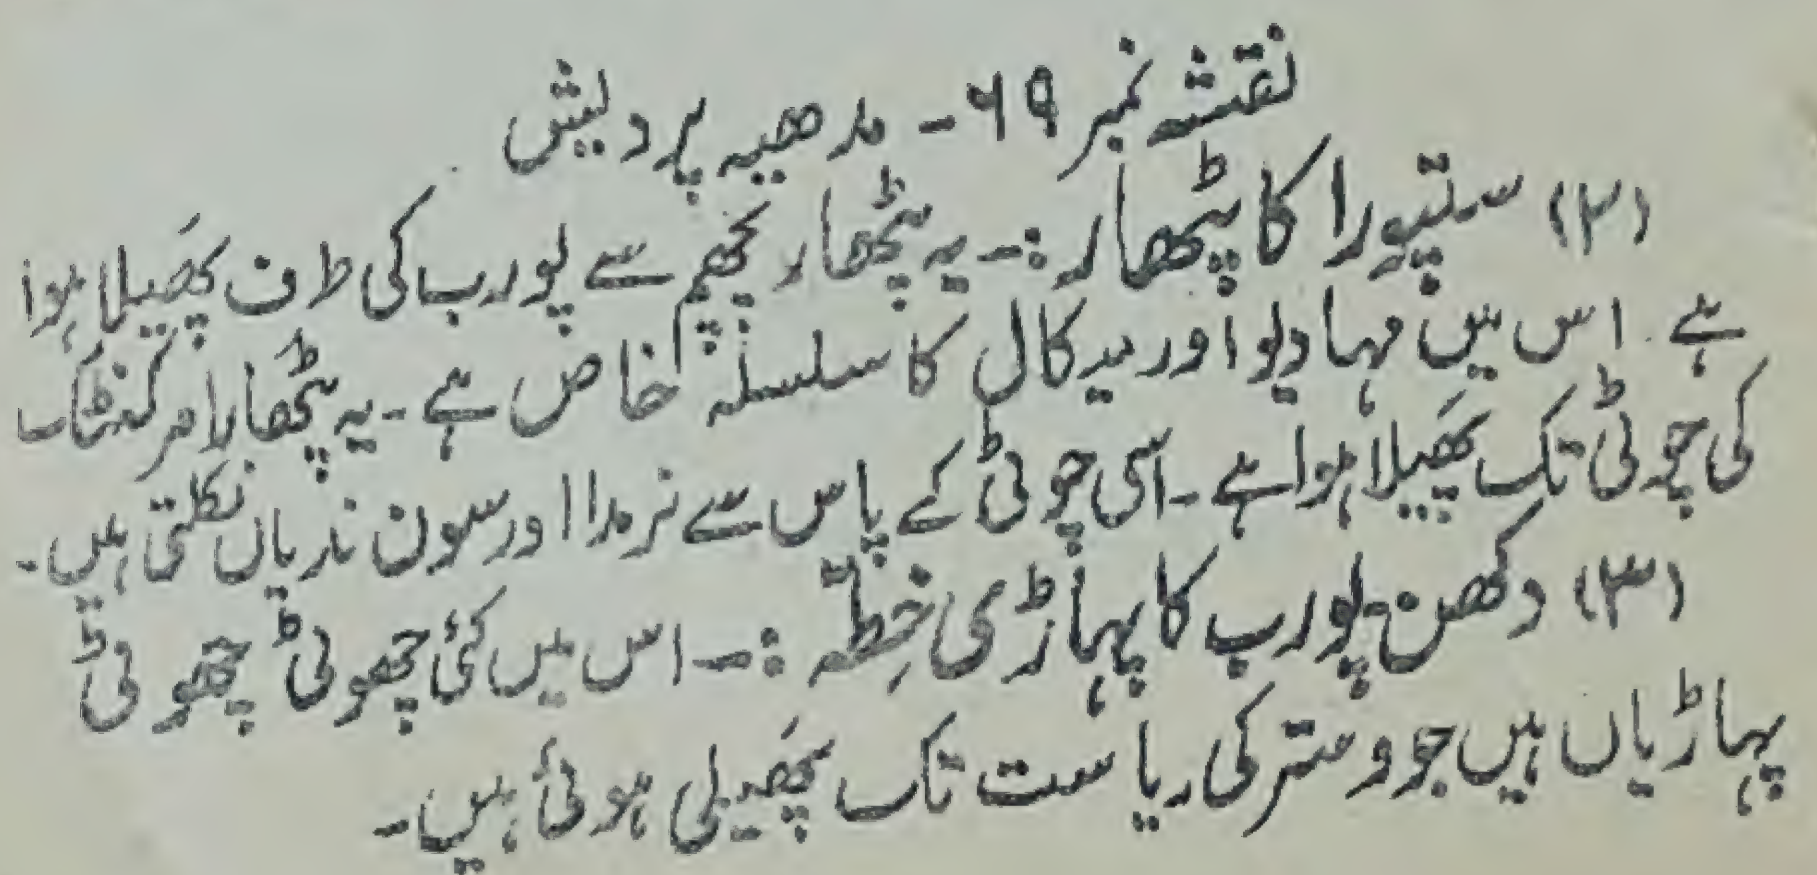 نقشہ نمبر ۶۹ - مدھیہ پردیش
(۲) ستپورا کا پٹھار :- یہ پٹھار پچھم سے پورب کی طرف پھیلا ہوا
ہے . اس میں مہادیو اور میکال کا سلسلہ خاص ہے - یہ پٹھار امرکنٹک
کی چوٹی تک پھیلا ہوا ہے - اسی چوٹی کے پاس سے نرمدا اور سون ندیاں نکلتی ہیں -
(۳) دکھن پورب کا پہاڑی خِطّہ :- اس میں کئی چھوٹی چھوٹی
پہاڑیاں ہیں جو وستر کی ریاست تک پھیلی ہوئی ہیں -